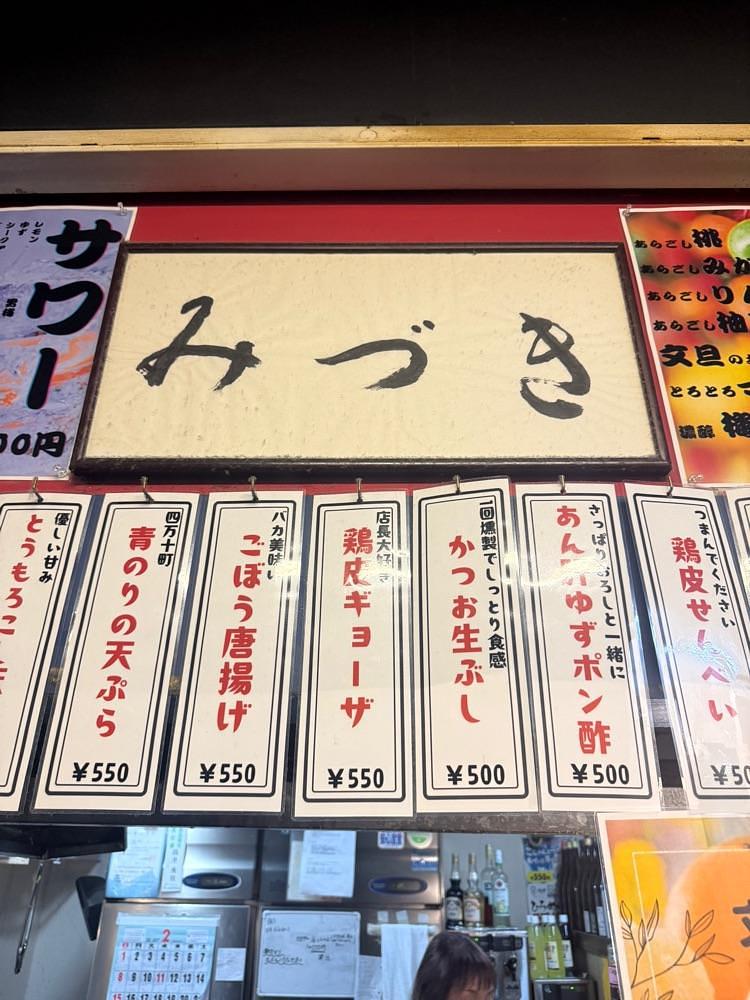 みづき
サワー
レモン
ゆず
00円
あらごし桃
あらごし
あらごし
あらごし
文旦の
とろとろ
濃醇
優しい甘み
とうもろこ
四万十町
青のりの天ぷら
¥550
バカ美味い
ごぼう唐揚げ
¥550
店長大好き
鶏皮ギョーザ
¥550
一回燻製でしっとり食感
かつお生ぶし
¥500
さっぱりおろしと一緒に
あん肝ゆずポン酢
¥500
つまんでください
鶏皮せんべい
2
1 2 3 4 5 6 7
8 9 10 11 12 13 14